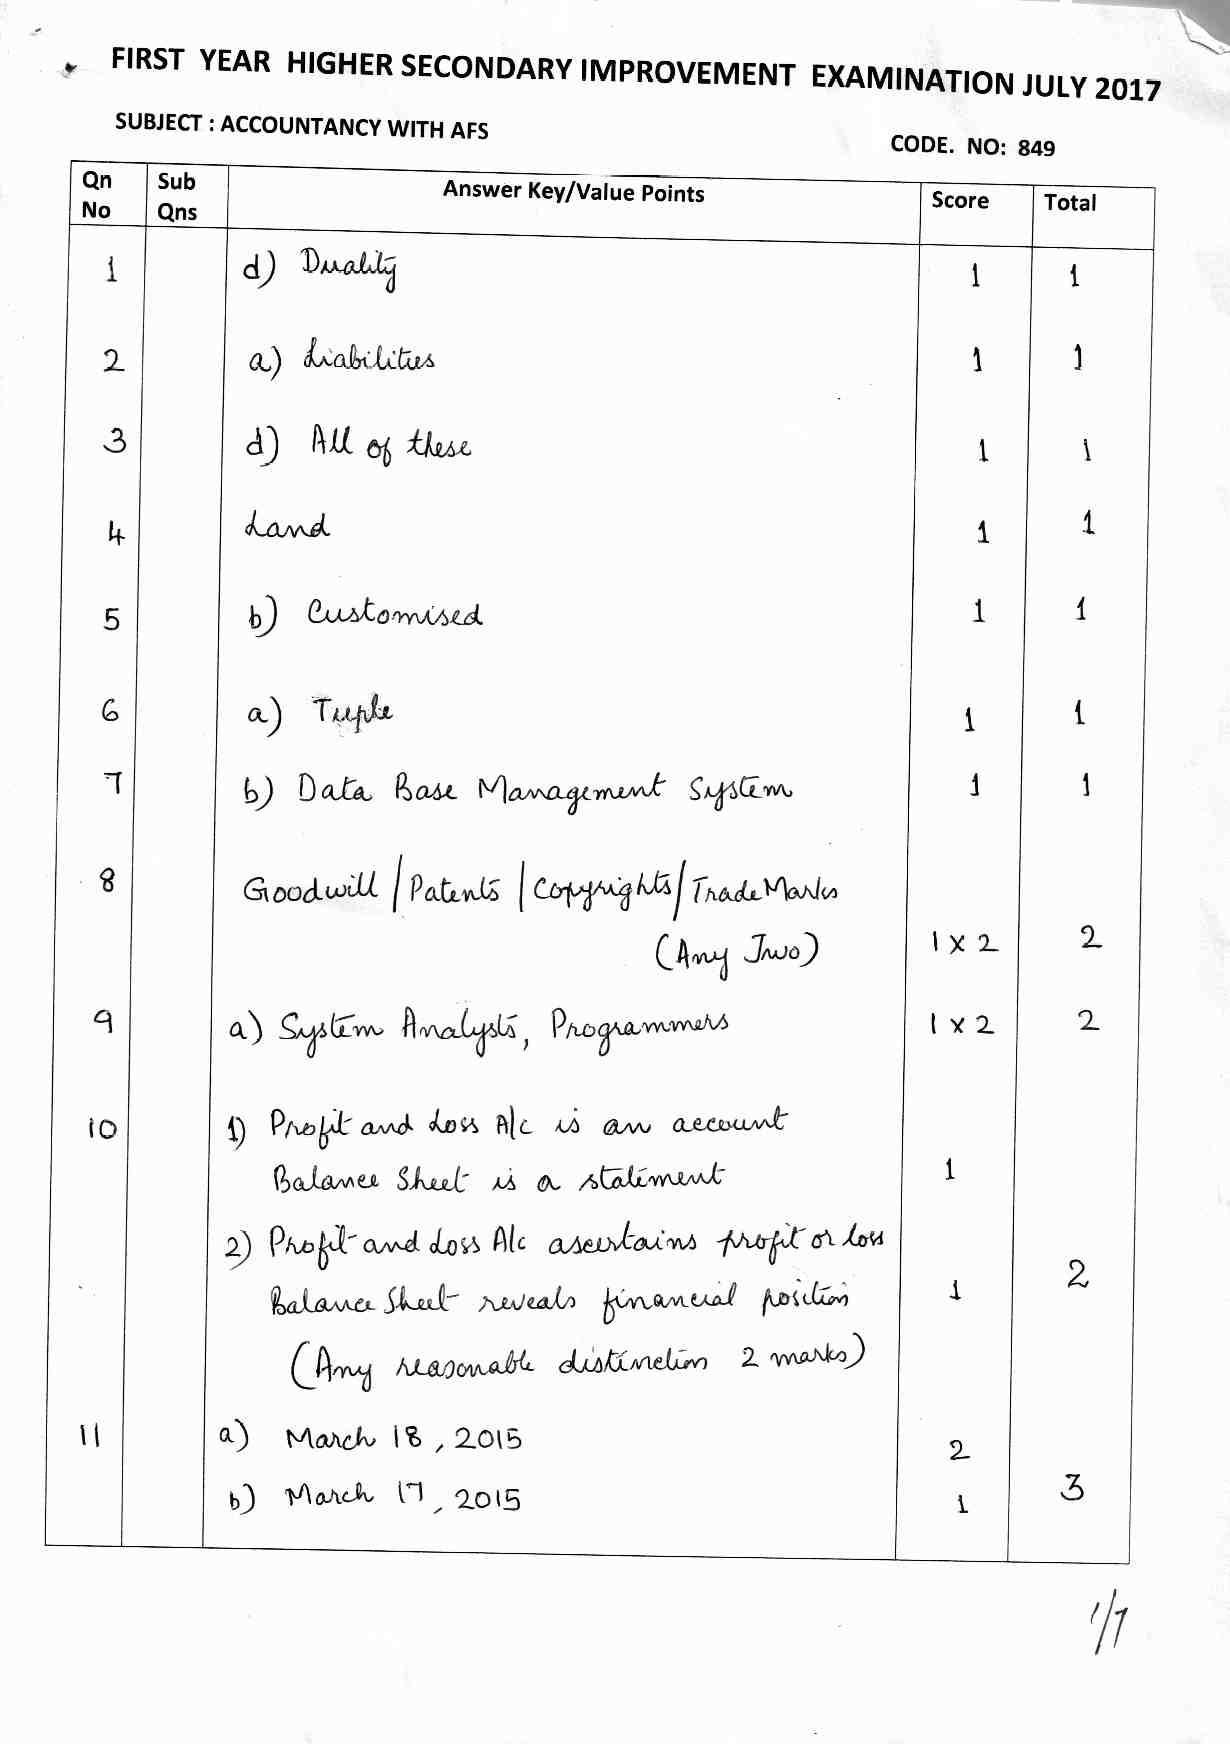 FIRST YEAR HIGHER SECONDARY IMPROVEMENT EXAMINATION JULY 2017
SUBJECT : ACCOUNTANCY WITH AFS
CODE. NO: 849
Qn No Sub Qns Answer Key/Value Points Score Total
1 d) Duality 1 1
2 a) Liabilities 1 1
3 d) All of these 1 1
4 Land 1 1
5 b) Customised 1 1
6 a) Tuple 1 1
7 b) Data Base Management System 1 1
8 Goodwill / Patents / Copyrights / Trade Marks
(Any Two) 1 x 2 2
9 a) System Analysts, Programmers 1 x 2 2
10 1) Profit and Loss A/c is an account
Balance Sheet is a statement 1
2) Profit and Loss A/c ascertains profit or loss
Balance Sheet reveals financial position 1 2
(Any reasonable distinction 2 marks)
11 a) March 18, 2015 2
b) March 17, 2015 1 3
1/7